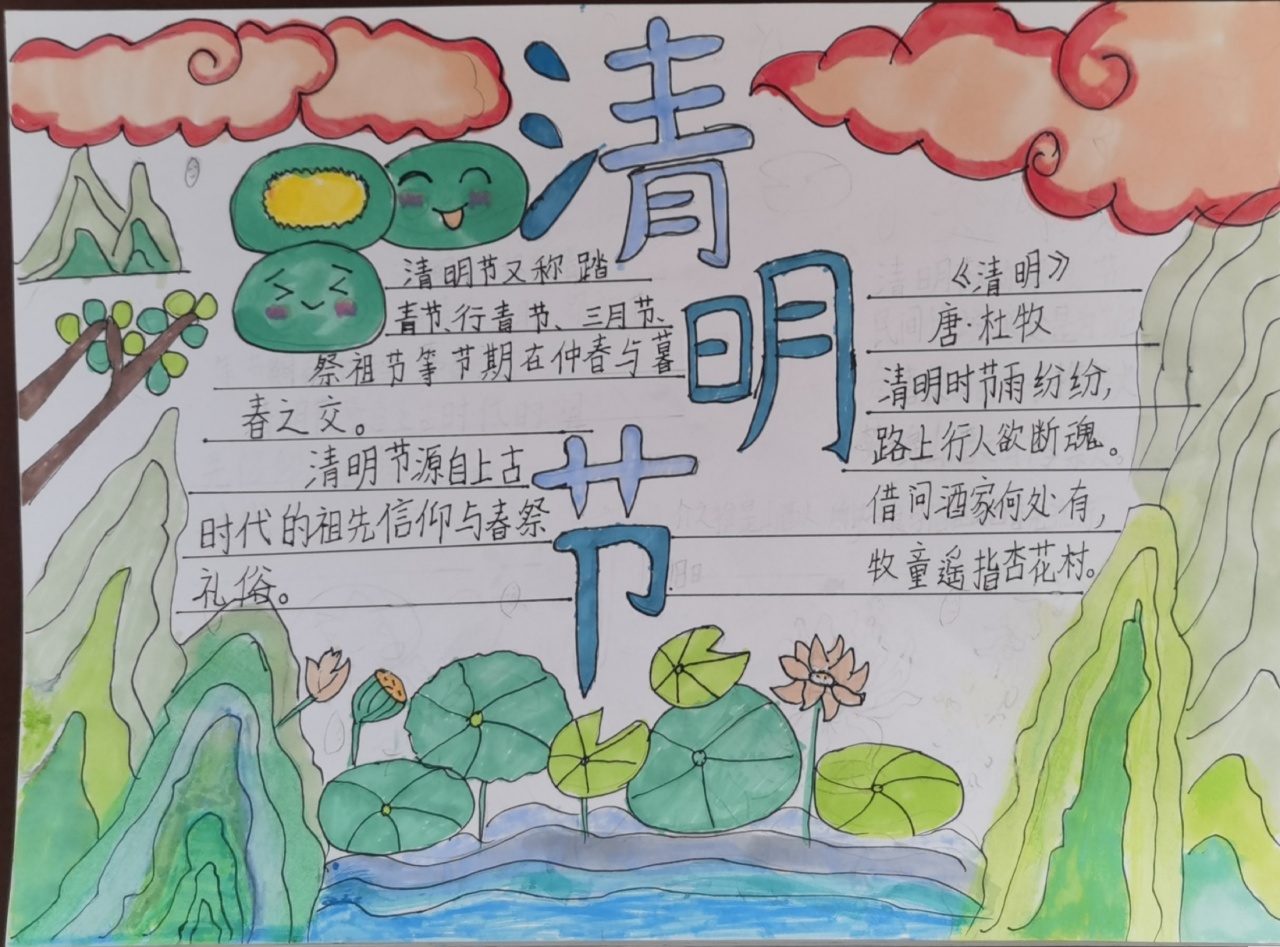 清明节
清明节又称踏
青节、行青节、三月节、
祭祖节等节期在仲春与暮
春之交。
清明节源自上古
时代的祖先信仰与春祭
礼俗。
《清明》
唐·杜牧
清明时节雨纷纷,
路上行人欲断魂。
借问酒家何处有,
牧童遥指杏花村。